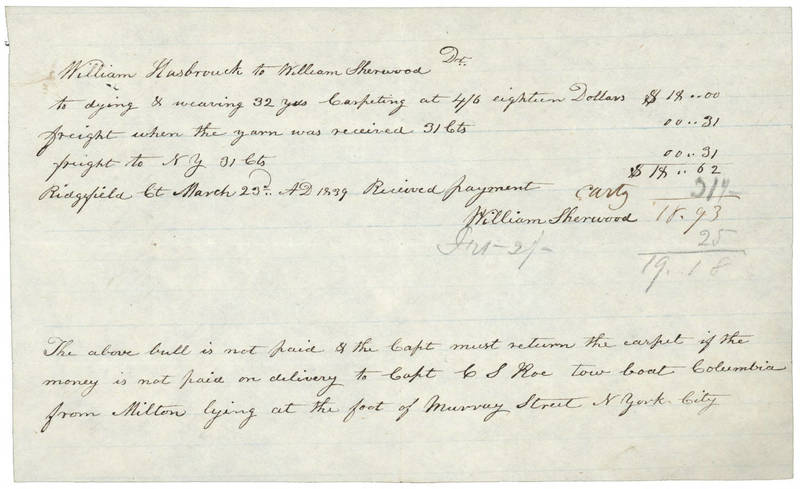 William Hasbrouck to William Sherwood Dr.
to dying & weaving 32 yds Carpeting at 4/6 eighteen Dollars $ 18..00
freight when the yarn was received 31 Cts 00..31
fright to N Y 31 Cts 00..31
$ 18..62
Ridgefield Ct March 23d. AD 1839 Received payment cartg 31
William Sherwood 18.93
Frt 2/- 25
19.18
The above bull is not paid & the Capt must return the carpet if the
money is not paid on delivery to Capt C S Roe tow boat Columbia
from Milton lying at the foot of Murray Street N York City